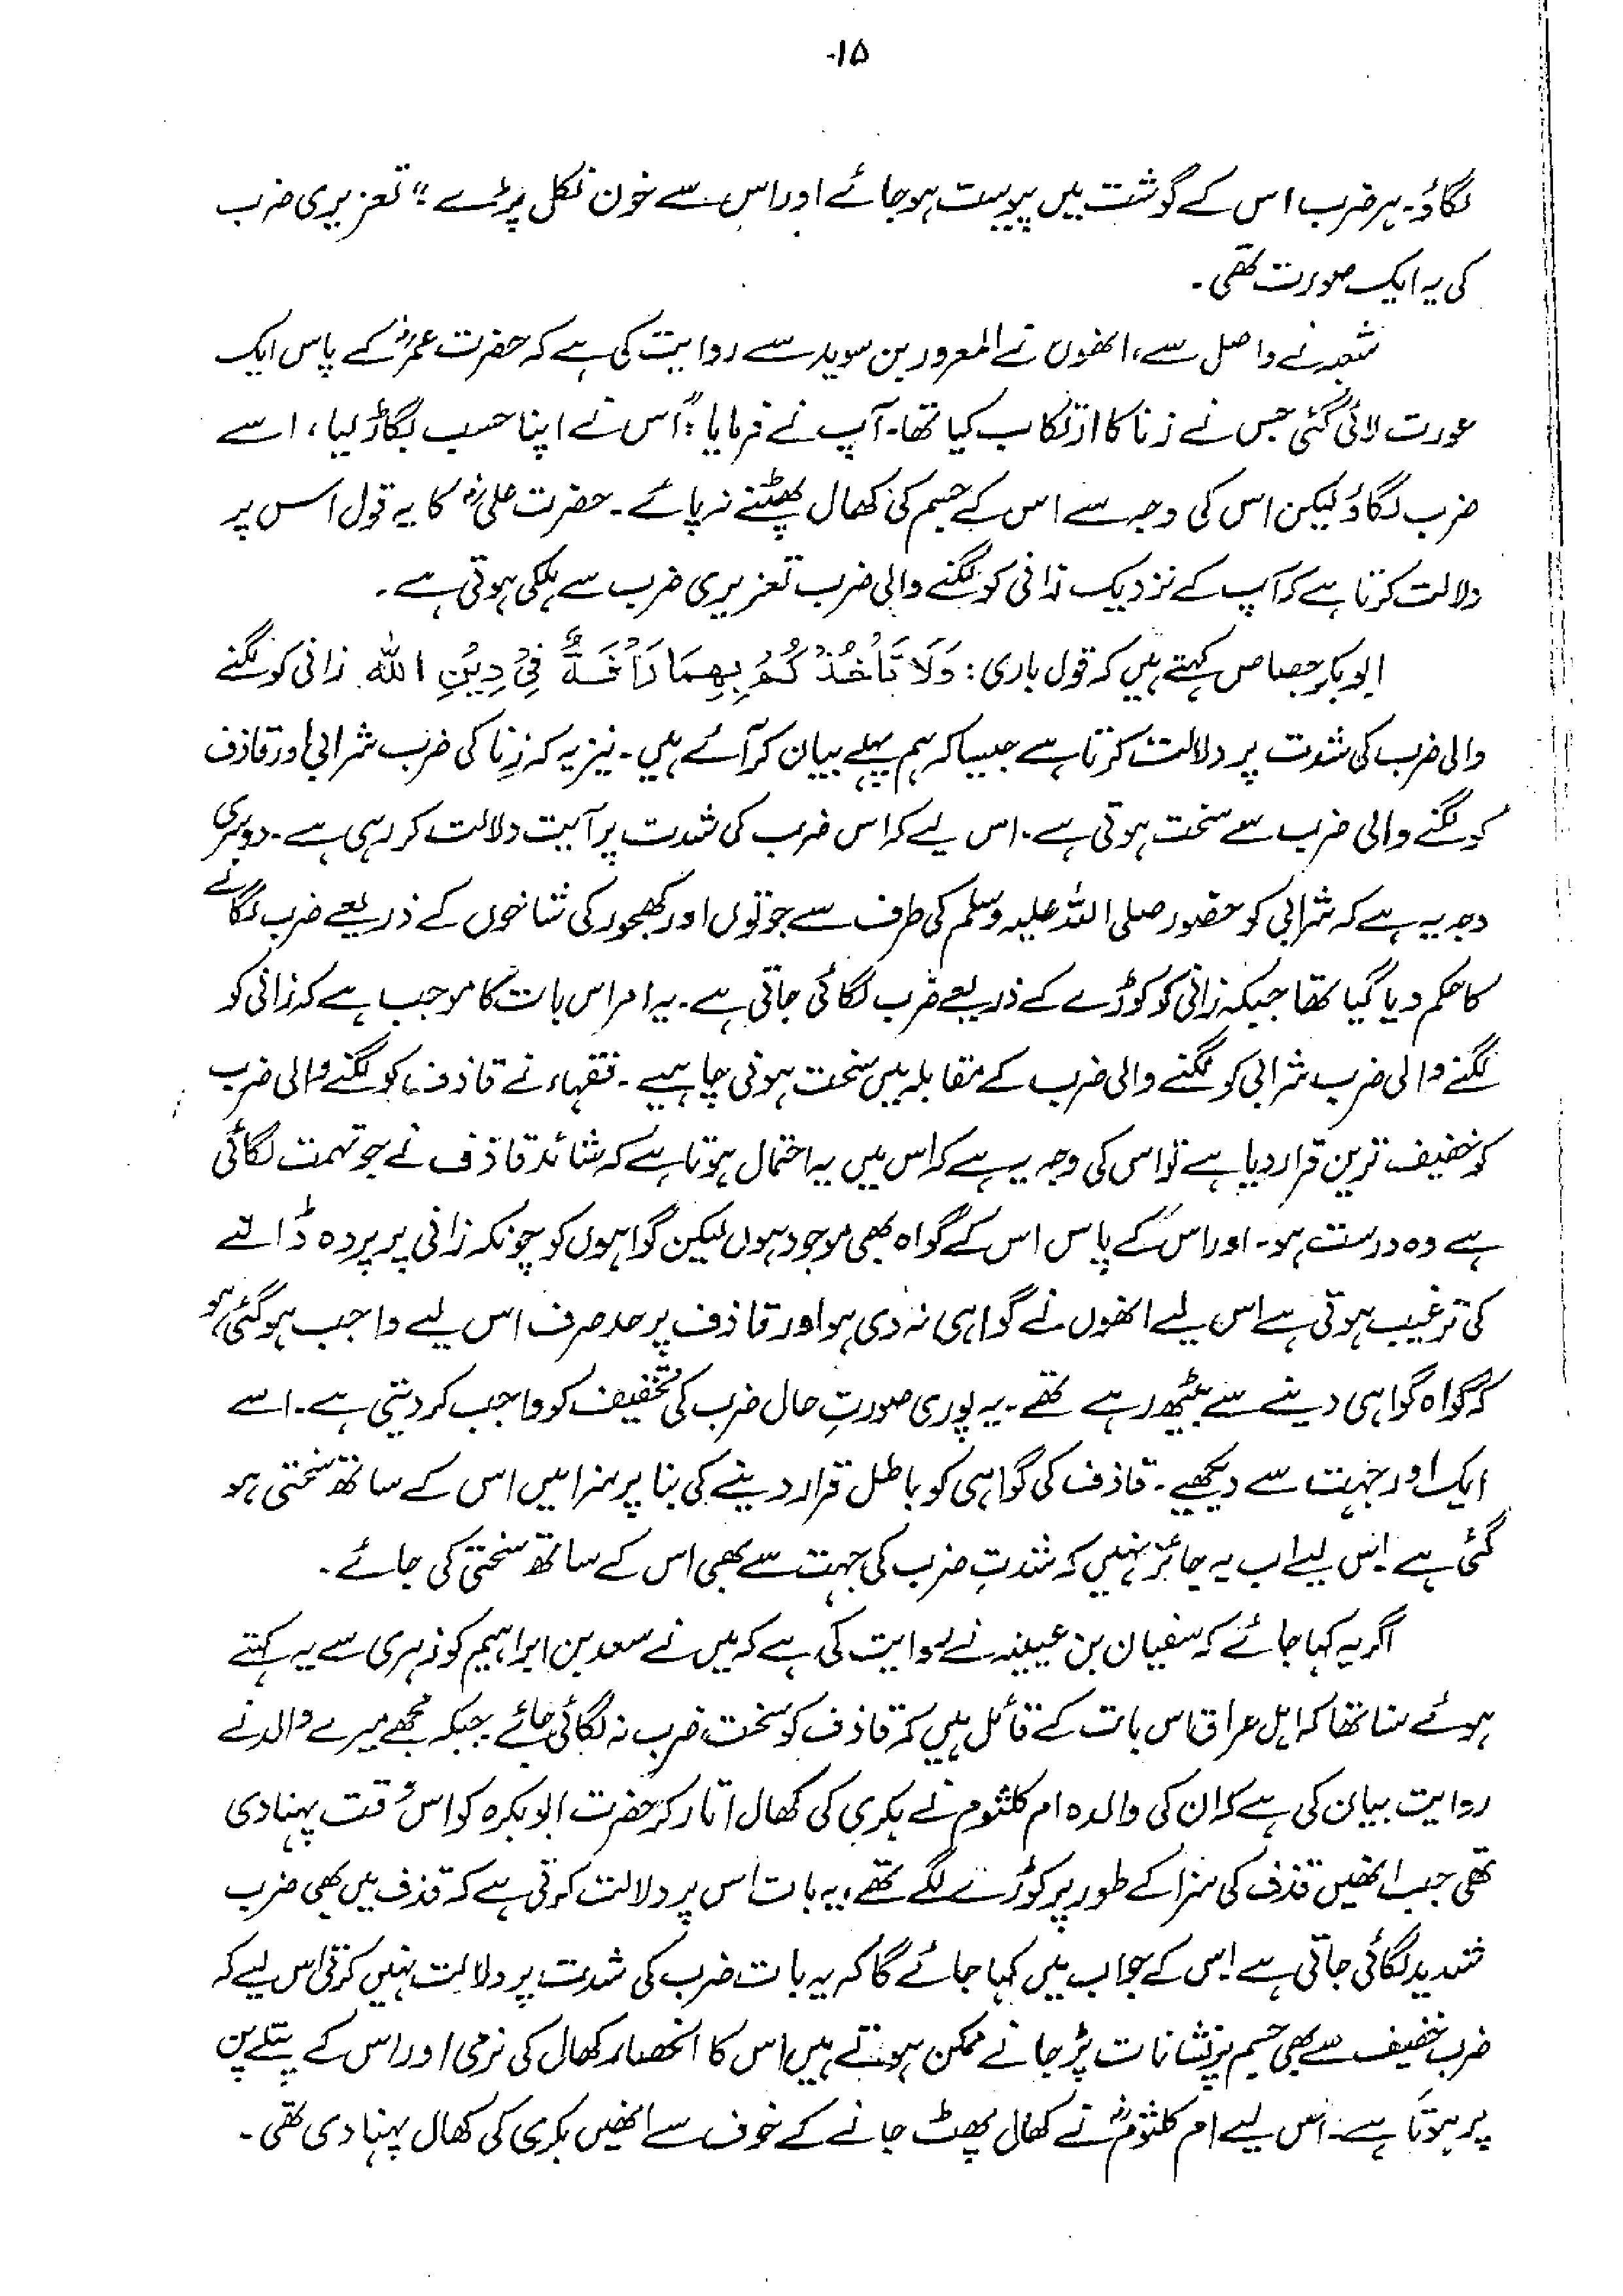 ۱۵۰
لگاؤ۔ ہر ضرب اس کے گوشت میں پیوست ہو جائے اور اس سے خون نکل پڑے" تعزیری ضرب
کی یہ ایک صورت تھی۔
شعبہ نے واصل سے، انھوں نے المعرور بن سوید سے روایت کی ہے کہ حضرت عمرؓ کے پاس ایک
عورت لائی گئی جس نے زنا کا ارتکاب کیا تھا۔ آپ نے فرمایا: "اس نے اپنا حسب بگاڑ لیا، اسے
ضرب لگاؤ لیکن اس کی وجہ سے اس کے جسم کی کھال پھٹنے نہ پائے۔ حضرت علیؓ کا یہ قول اس پر
دلالت کرتا ہے کہ آپ کے نزدیک زانی کو لگنے والی ضرب تعزیری ضرب سے ہلکی ہوتی ہے۔
ابوبکر جصاص کہتے ہیں کہ قول باری: وَلَا تَأْخُذْكُمْ بِهِمَا رَأْفَةٌ فِيْ دِيْنِ اللّٰه زانی کو لگنے
والی ضرب کی شدت پر دلالت کرتا ہے جیسا کہ ہم پہلے بیان کر آئے ہیں۔ نیز یہ کہ زنا کی ضرب شرابی اور قاذف
کو لگنے والی ضرب سے سخت ہوتی ہے۔ اس لیے کہ اس ضرب کی شدت پر آیت دلالت کر رہی ہے۔ دوسری
وجہ یہ ہے کہ شرابی کو حضور صلی اللہ علیہ وسلم کی طرف سے جوتوں اور کھجور کی شاخوں کے ذریعے ضرب لگانے
کا حکم دیا گیا تھا جبکہ زانی کو کوڑے کے ذریعے ضرب لگائی جاتی ہے۔ یہ امر اس بات کا موجب ہے کہ زانی کو
لگنے والی ضرب شرابی کو لگنے والی ضرب کے مقابلہ میں سخت ہونی چاہیے۔ فقہاء نے قاذف کو لگنے والی ضرب
کو خفیف ترین قرار دیا ہے تو اس کی وجہ یہ ہے کہ اس میں یہ احتمال ہوتا ہے کہ شائد قاذف نے جو تہمت لگائی
ہے وہ درست ہو۔ اور اس کے پاس اس کے گواہ بھی موجود ہوں لیکن گواہوں کو چونکہ زانی پر پردہ ڈالنے
کی ترغیب ہوتی ہے اس لیے انھوں نے گواہی نہ دی ہو اور قاذف پر حد صرف اس لیے واجب ہو گئی ہو
کہ گواہ گواہی دینے سے بیٹھ رہے تھے۔ یہ پوری صورتِ حال ضرب کی تخفیف کو واجب کر دیتی ہے۔ اسے
ایک اور جہت سے دیکھیے۔ قاذف کی گواہی کو باطل قرار دینے کی بنا پر سزا میں اس کے ساتھ سختی ہو
گئی ہے اس لیے اب یہ جائز نہیں کہ شدتِ ضرب کی جہت سے بھی اس کے ساتھ سختی کی جائے۔
اگر یہ کہا جائے کہ سفیان بن عیینہ نے روایت کی ہے کہ میں نے سعد بن ابراہیم کو زہری سے یہ کہتے
ہوئے سنا تھا کہ اہل عراق اس بات کے قائل ہیں کہ قاذف کو سخت ضرب نہ لگائی جائے جبکہ مجھے میرے والد نے
روایت بیان کی ہے کہ ان کی والدہ ام کلثوم نے بکری کی کھال اتار کر حضرت ابوبکرہ کو اس وقت پہنا دی
تھی جب انھیں قذف کی سزا کے طور پر کوڑے لگے تھے، یہ بات اس پر دلالت کرتی ہے کہ قذف میں بھی ضرب
شدید لگائی جاتی ہے اس کے جواب میں کہا جائے گا کہ یہ بات ضرب کی شدت پر دلالت نہیں کرتی اس لیے کہ
ضرب خفیف سے بھی جسم پر نشانات پڑ جانے ممکن ہوتے ہیں اس کا انحصار کھال کی نرمی اور اس کے پتلے پن
پر ہوتا ہے۔ اس لیے ام کلثومؓ نے کھال پھٹ جانے کے خوف سے انھیں بکری کی کھال پہنا دی تھی۔